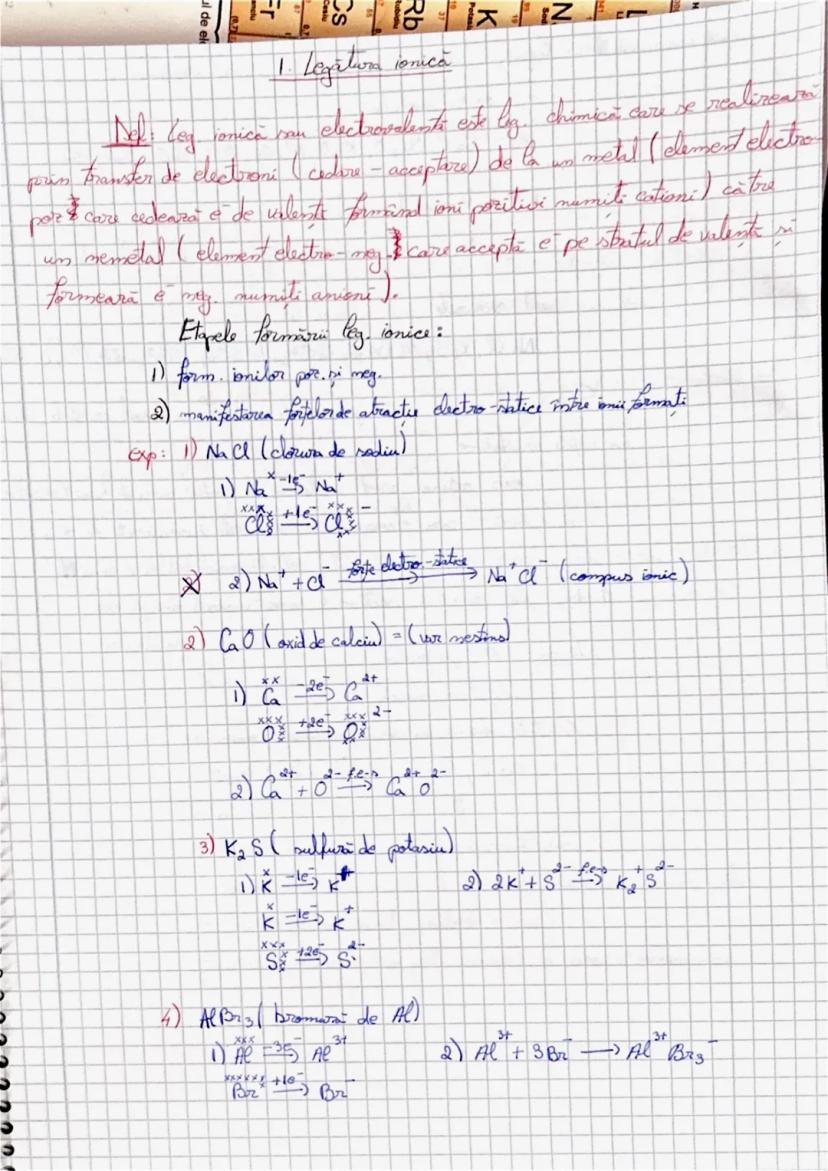 ul de el
Fr
Cs
Rb
K
N
L
1. Legătura ionică
Def: Leg ionică sau electrovalentă este leg. chimică care se realizează
prin transfer de electroni (cedare - acceptare) de la un metal (element electro-
poz care cedează e⁻ de valență formând ioni pozitivi numiți cationi) către
un nemetal (element electro-neg. care acceptă e⁻ pe stratul de valență și
formează e⁻ neg. numiți anioni).
Etapele formării leg. ionice:
1) form. ionilor poz. și neg.
2) manifestarea forțelor de atracție electro-statice între ionii formați
exp: 1) NaCl (clorura de sodiu)
1) Naˣ -1e⁻→ Na⁺
Cl +1e⁻→ Cl⁻
2) Na⁺ + Cl⁻ forțe electro-statice→ Na⁺Cl⁻ (compus ionic)
2) CaO (oxid de calciu) = (var nestins)
1) Ca -2e⁻→ Ca²⁺
O +2e⁻→ O²⁻
2) Ca²⁺ + O²⁻ f.e-s→ Ca²⁺O²⁻
3) K₂S (sulfură de potasiu)
1) K -1e⁻→ K⁺ 2) 2K⁺ + S²⁻ f.e-s→ K₂⁺S²⁻
K -1e⁻→ K⁺
S +2e⁻→ S²⁻
4) AlBr₃ (bromură de Al)
1) Al -3e⁻→ Al³⁺ 2) Al³⁺ + 3Br⁻ → Al³⁺Br₃⁻
Br +1e⁻→ Br⁻